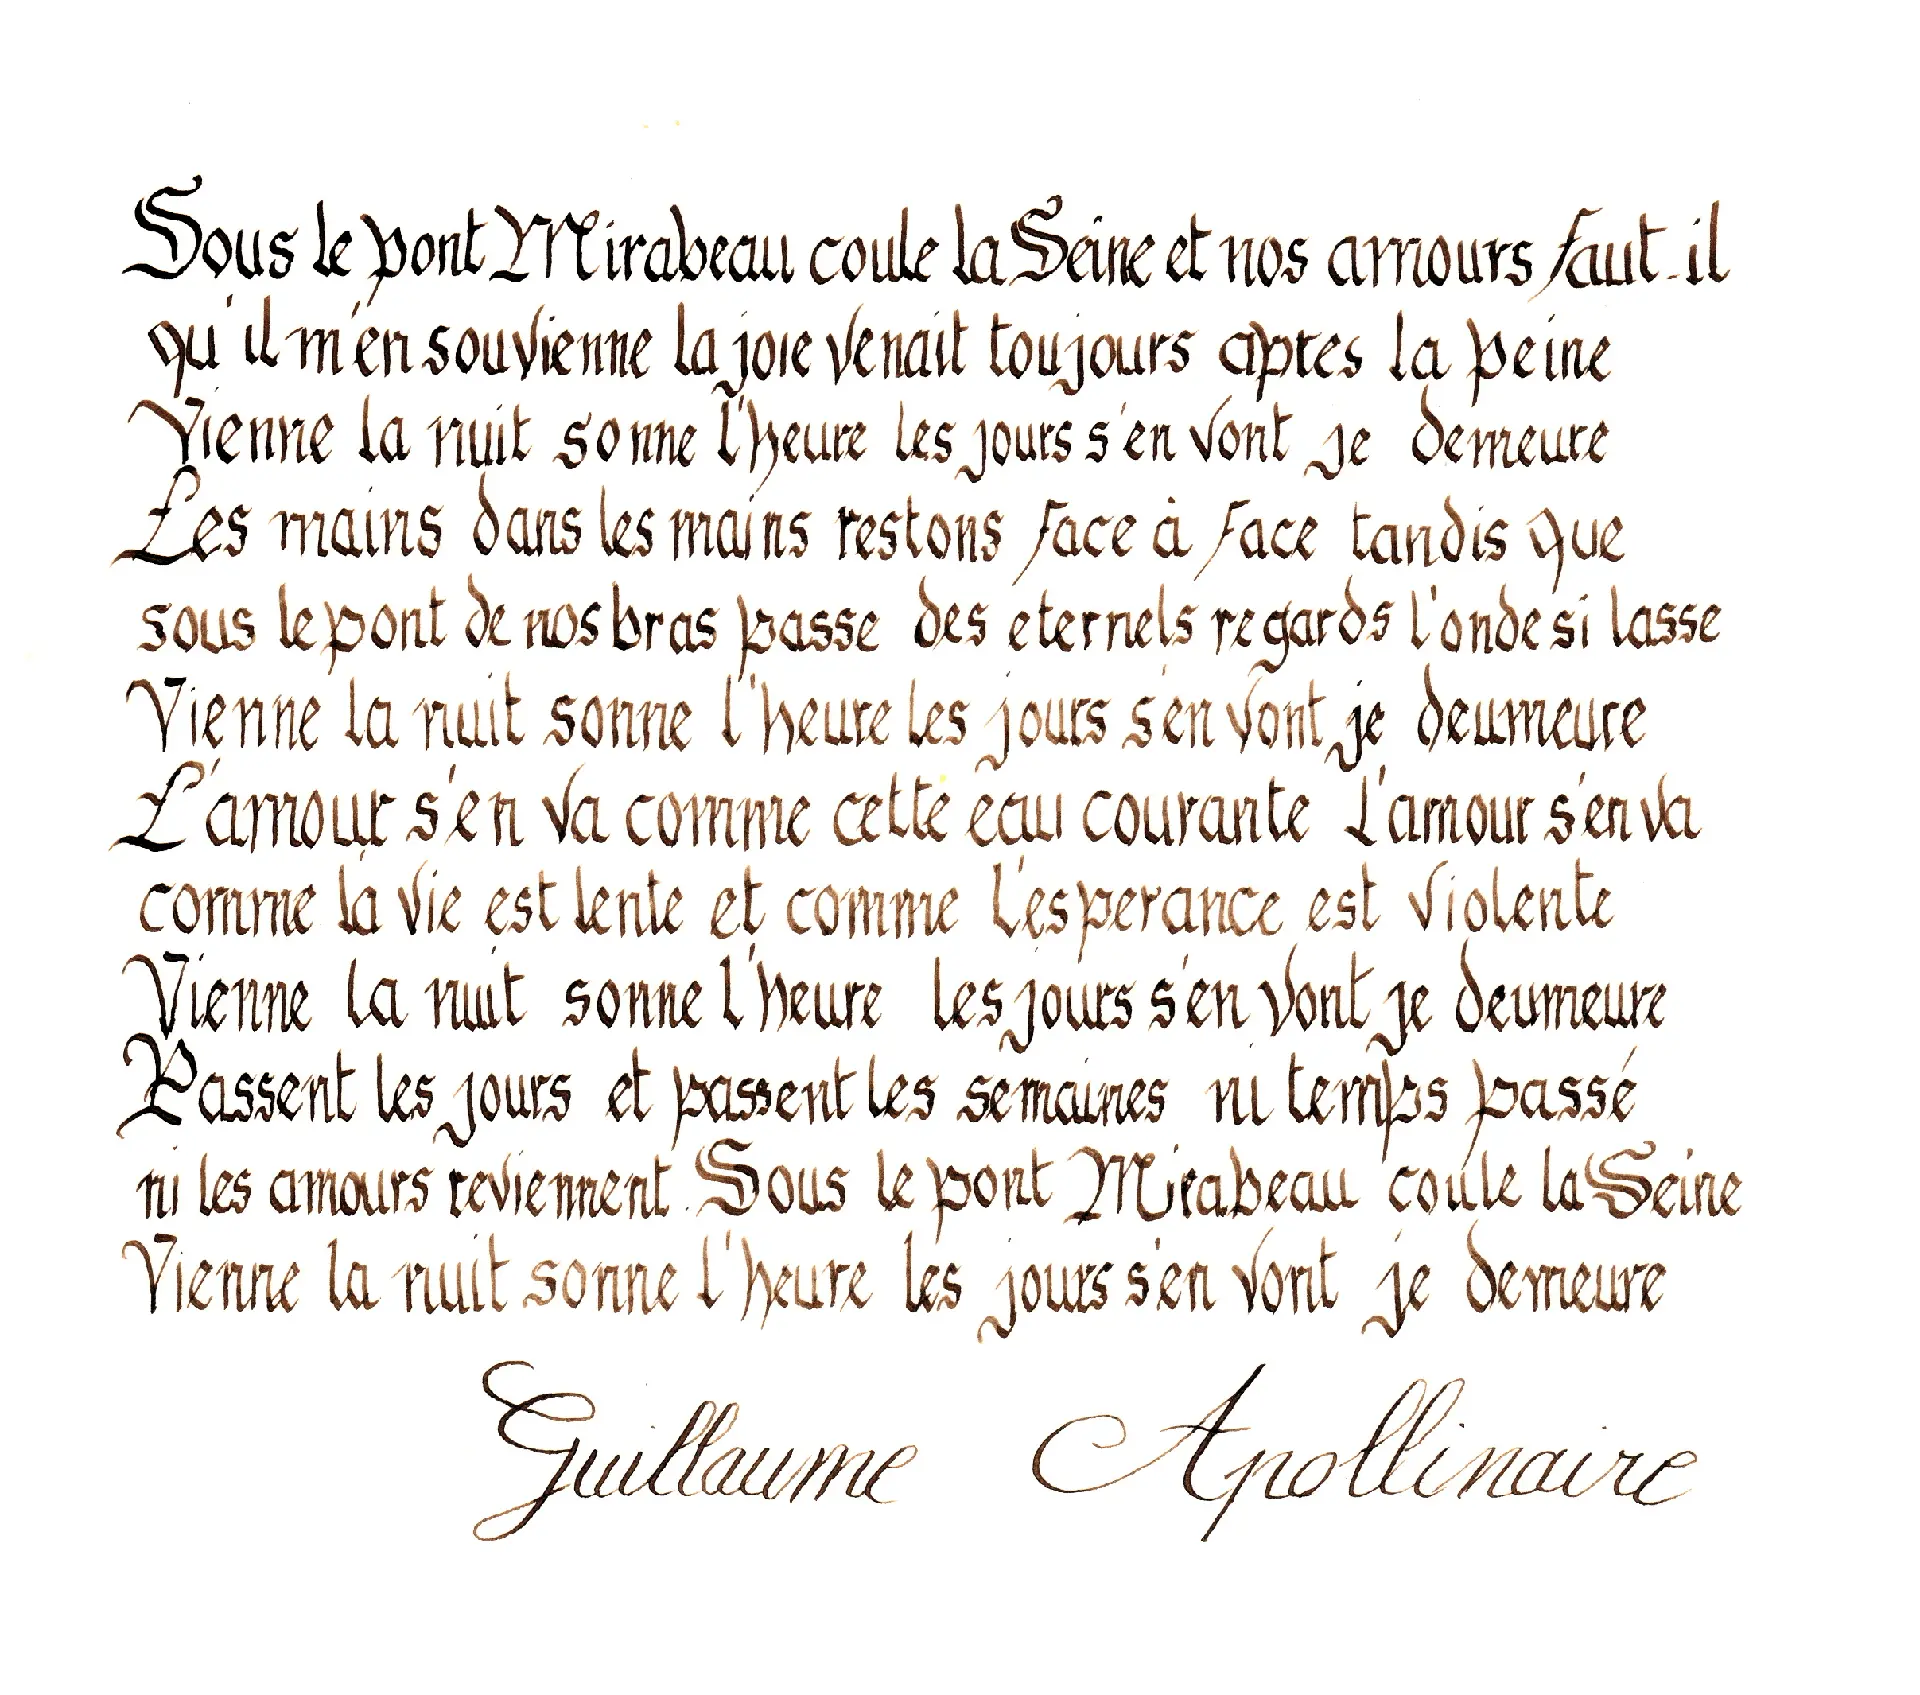 Sous le pont Mirabeau coule la Seine et nos amours faut-il
qu'il m'en souvienne la joie venait toujours apres la peine
Vienne la nuit sonne l'heure les jours s'en vont je demeure
Les mains dans les mains restons face à face tandis que
sous le pont de nos bras passe des eternels regards l'onde si lasse
Vienne la nuit sonne l'heure les jours s'en vont je deumeure
L'amour s'en va comme cette eau courante L'amour s'en va
comme la vie est lente et comme l'esperance est violente
Vienne la nuit sonne l'heure les jours s'en vont je deumeure
Passent les jours et passent les semaines ni temps passé
ni les amours reviennent. Sous le pont Mirabeau coule la Seine
Vienne la nuit sonne l'heure les jours s'en vont je demeure
Guillaume Apollinaire